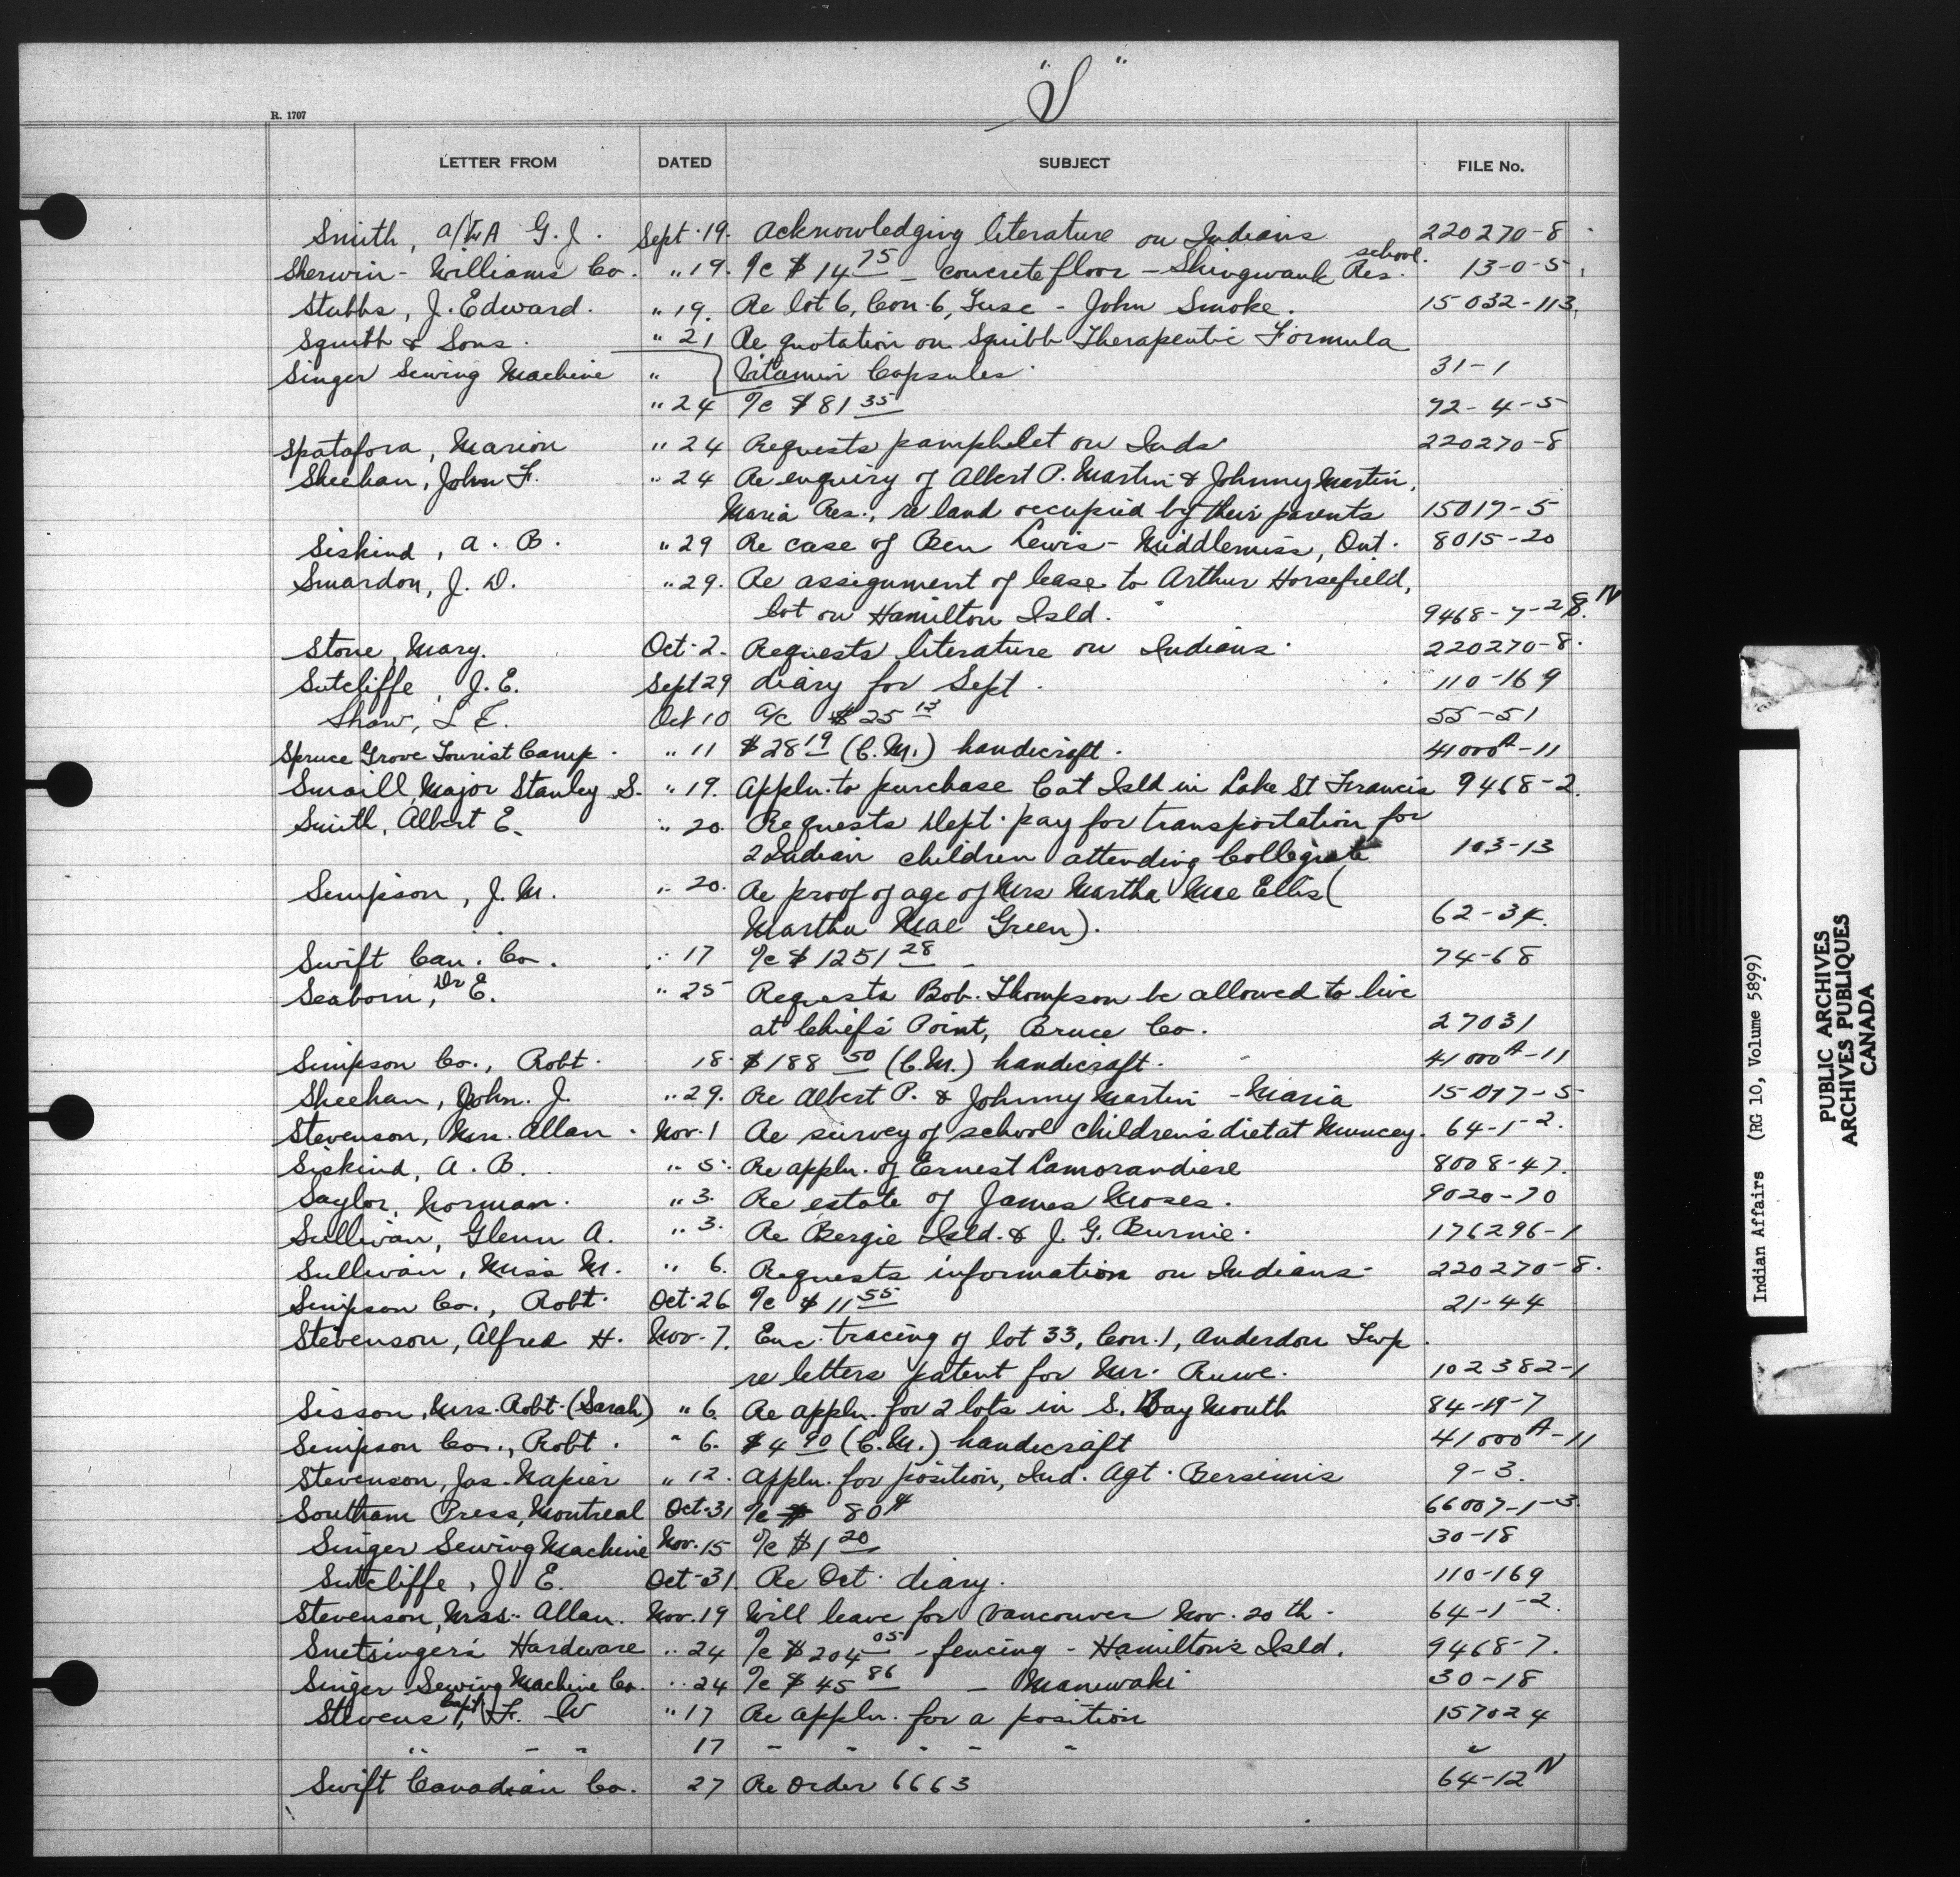 "S"
R. 1707
LETTER FROM DATED SUBJECT FILE No.
Smith, G. J. Sept. 19. Acknowledging literature on Indians 220270-8
Sherwin-Williams Co. " 19. a/c $14 75 - concrete floor - Shingwauk Res. school. 13-0-5
Stubbs, J. Edward. " 19. Re lot 6, Con. 6, Tusc - John Smoke. 15032-113
Squibb & Sons. " 21 Re quotation on Squibb Therapeutic Formula
Singer Sewing Machine " Vitamin Capsules. 31-1
" 24 a/c $81 35 72-4-5
Spatafora, Marion " 24 Requests pamphlet on Inds. 220270-8
Sheehan, John F. " 24 Re enquiry of Albert P. Martin & Johnny Martin,
Maria Res., re land occupied by their parents 15017-5
Siskind, A. B. " 29 Re case of Ben Lewis - Middlemiss, Ont. 8015-20
Smardon, J. D. " 29. Re assignment of lease to Arthur Horsefield,
lot on Hamilton Isld. 9468-7-28 N
Stone, Mary. Oct. 2. Requests literature on Indians. 220270-8.
Sutcliffe, J. E. Sept 29 diary for Sept. 110-169
Shaw, L E. Oct 10 a/c $25 13 55-51
Spruce Grove Tourist Camp. " 11 $28 19 (C.M.) handicraft. 41000A-11
Smaill, Major Stanley S. " 19. Appln. to purchase Cat Isld in Lake St Francis 9468-2.
Smith, Albert E. " 20. Requests Dept. pay for transportation for
2 Indian children attending Collegiate 103-13
Simpson, J. M. " 20. Re proof of age of Mrs Martha Mae Ellis (
Martha Mae Green). 62-34.
Swift Can. Co. " 17 a/c $1251 28 74-68
Seaborn, Dr E. " 25 Requests Bob. Thompson be allowed to live
at Chief's Point, Bruce Co. 27031
Simpson Co., Robt. 18. $188 50 (C.M.) handicraft. 41000A-11
Sheehan, John. J. " 29. Re Albert P. & Johnny Martin - Maria 15017-5
Stevenson, Mrs. Allan. Nov. 1 Re survey of school children's diet at Muncey. 64-1-2.
Siskind, A. B. " 5. Re appln. of Ernest Lamorandiere 8008-47.
Saylor, Norman. " 3. Re estate of James Moses. 9020-70
Sullivan, Glenn A. " 3. Re Bergie Isld. & J. G. Burnie. 176296-1
Sullivan, Miss M. " 6. Requests information on Indians. 220270-8.
Simpson Co., Robt. Oct. 26 a/c $11 55 21-44
Stevenson, Alfred H. Nov. 7. Enc. tracing of lot 33, Con. 1, Anderdon Twp.
re letters patent for Mr. Ruwe. 102382-1
Sisson, Mrs. Robt. (Sarah) " 6. Re appln. for 2 lots in S. Bay Mouth 84-19-7
Simpson Co., Robt. " 6. $4 90 (C.M.) handicraft 41000A-11
Stevenson, Jas. Napier " 12. Appln. for position, Ind. Agt. Bersimis 9-3.
Southam Press, Montreal Oct. 31 a/c $ 80¢ 66007-1-3
Singer Sewing Machine Nov. 15 a/c $1 20 30-18
Sutcliffe, J. E. Oct. 31. Re Oct. diary. 110-169
Stevenson, Mrs. Allan. Nov. 19 Will leave for Vancouver Nov. 20 th. 64-1-2.
Snetsinger's Hardware " 24 a/c $204 05 - fencing - Hamilton's Isld. 9468-7.
Singer Sewing Machine Co. " 24 a/c $45 86 - Maniwaki 30-18
Stevens, Capt. F. W " 17 Re appln. for a position 157024
" " " 17 " " " " " "
Swift Canadian Co. 27 Re Order 6663 64-12 N
Indian Affairs (RG 10, Volume 5899)
PUBLIC ARCHIVES
ARCHIVES PUBLIQUES
CANADA